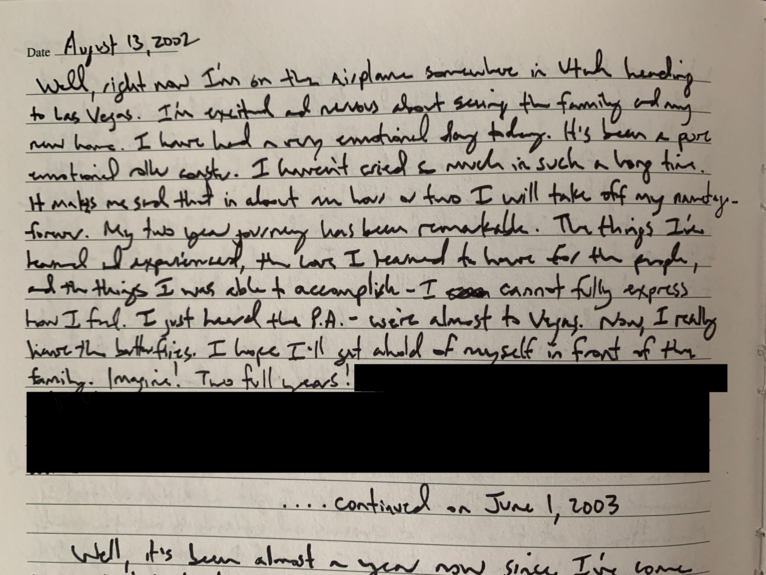 Date August 13, 2002
Well, right now I'm on the airplane somewhere in Utah heading
to Las Vegas. I'm excited and nervous about seeing the family and my
new home. I have had a very emotional day today. It's been a pure
emotional roller coaster. I haven't cried so much in such a long time.
It makes me sad that in about an hour or two I will take off my nametag-
forever. My two year journey has been remarkable. The things I've
learned and experienced, the love I learned to have for the people,
and the things I was able to accomplish - I cannot fully express
how I feel. I just heard the P.A. - we're almost to Vegas. Now, I really
have the butterflies. I hope I'll get ahold of myself in front of the
family. Imagine! Two full years!
....continued on June 1, 2003
Well, it's been almost a year now since I've come